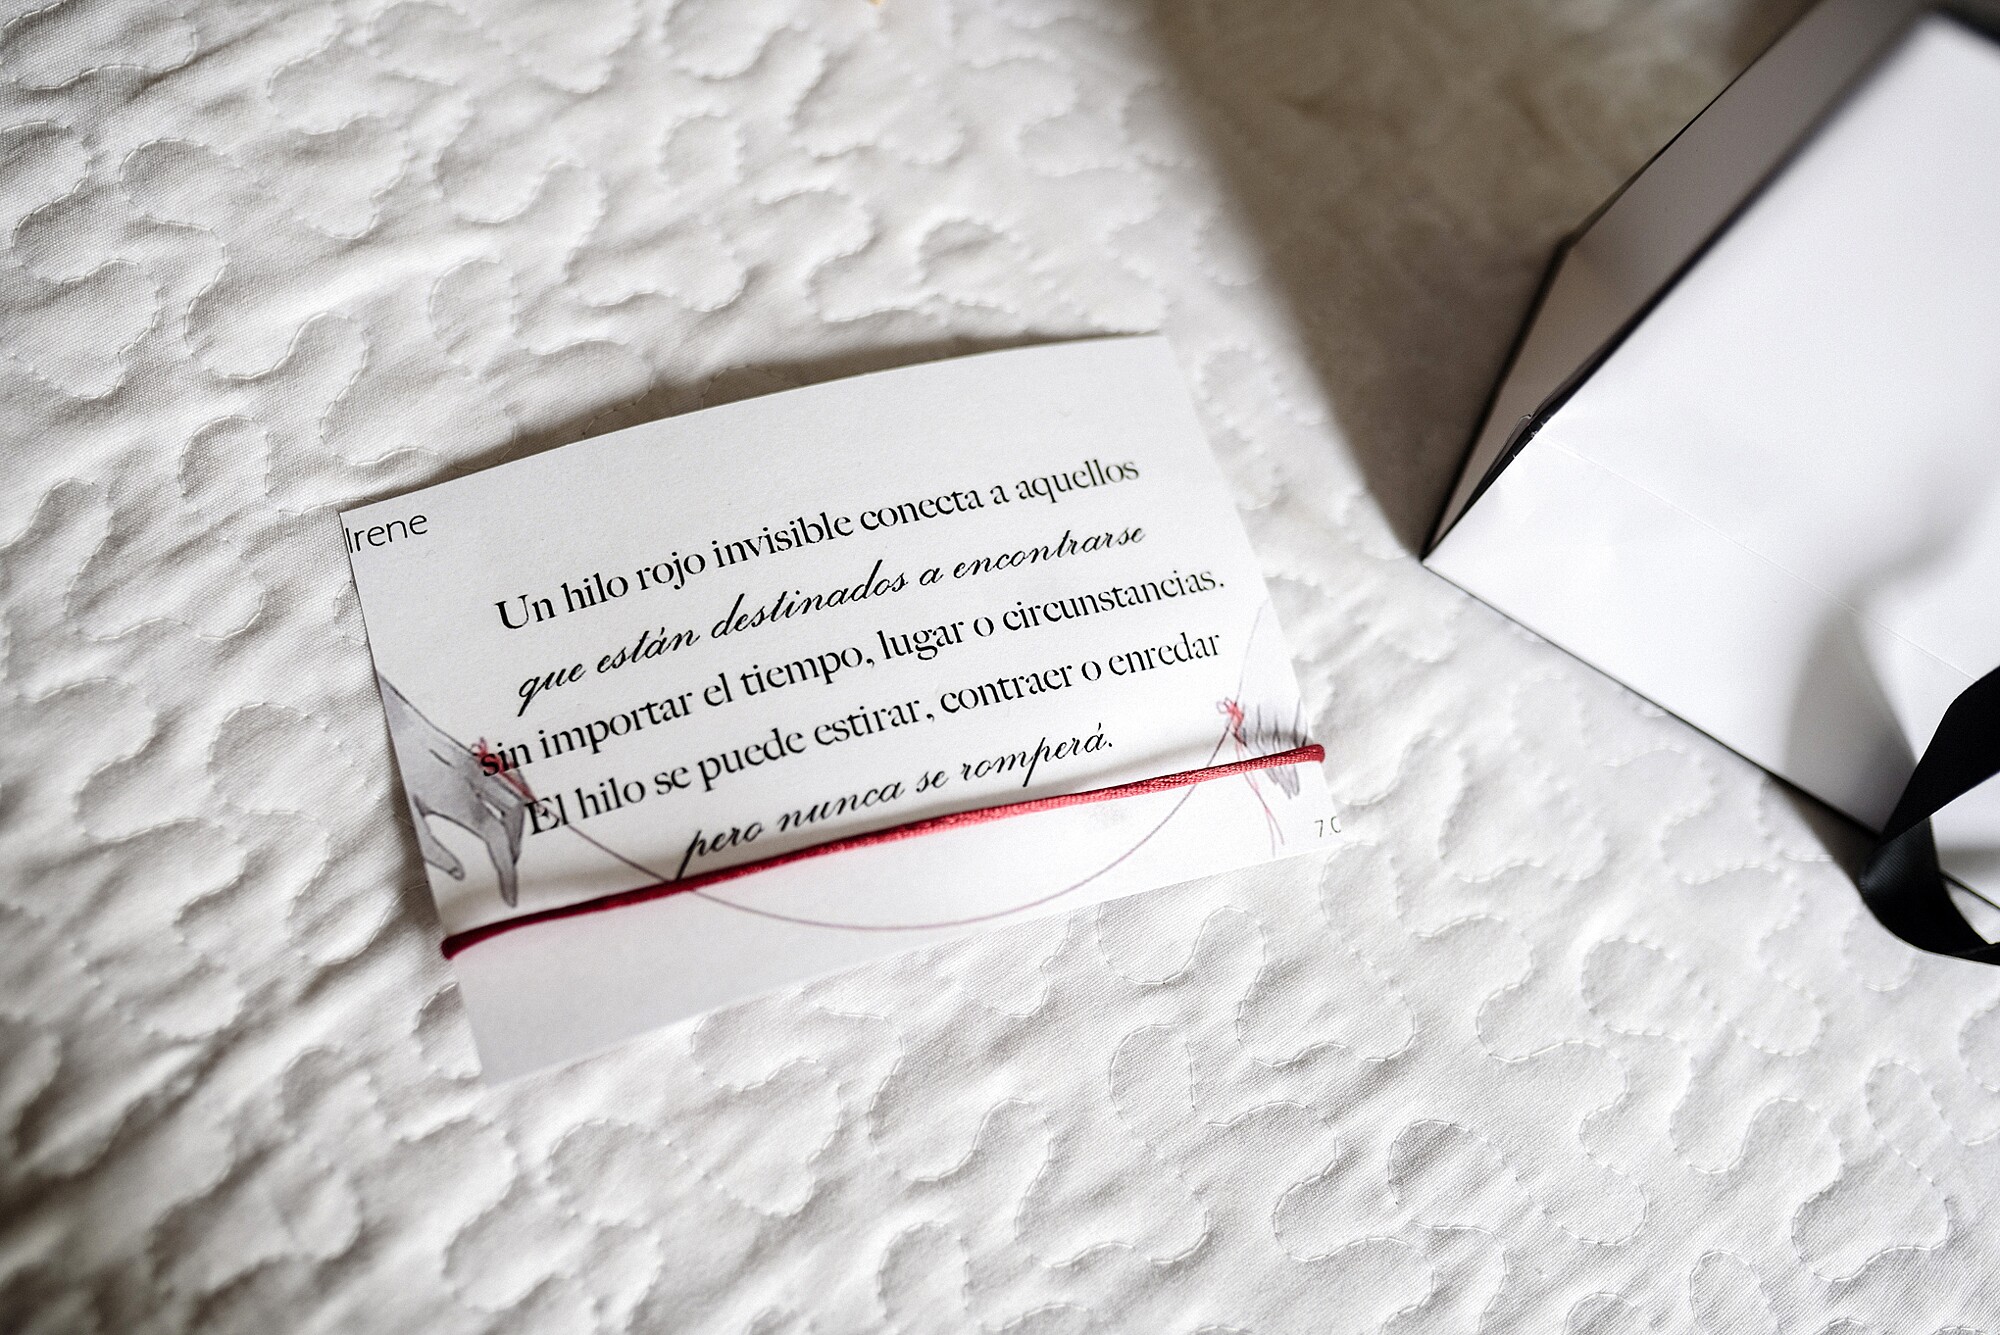 Irene
Un hilo rojo invisible conecta a aquellos
que están destinados a encontrarse
sin importar el tiempo, lugar o circunstancias.
El hilo se puede estirar, contraer o enredar
pero nunca se romperá.